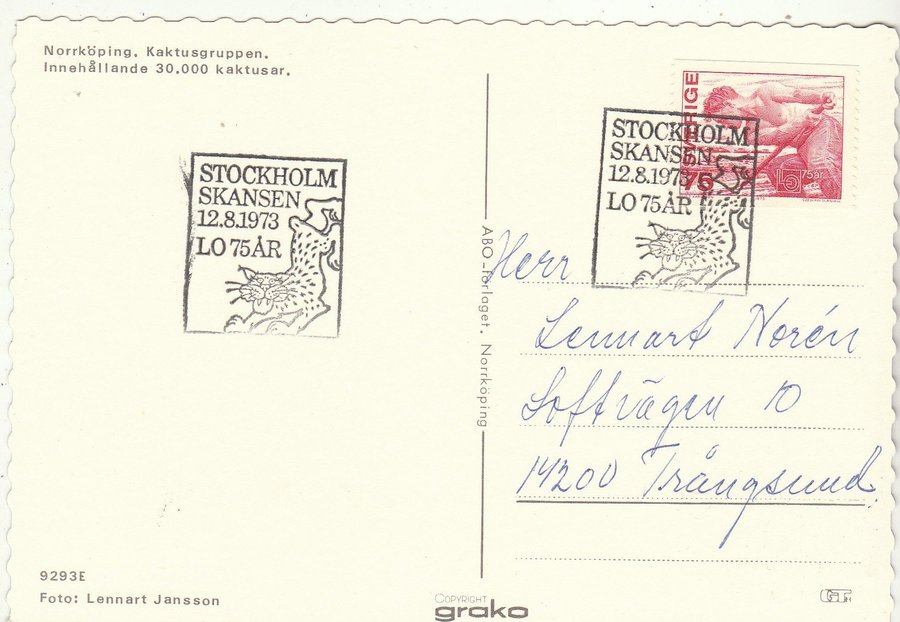 Norrköping. Kaktusgruppen.
Innehållande 30.000 kaktusar.
STOCKHOLM
SKANSEN
12.8.1973
LO 75ÅR
9293E
Foto: Lennart Jansson
ABO-förlaget. Norrköping
COPYRIGHT
grako
SVERIGE
75
LO 75år
STOCKHOLM
SKANSEN
12.8.1973
LO 75ÅR
Herr
Lennart Norén
Loftvägen 10
14200 Trångsund